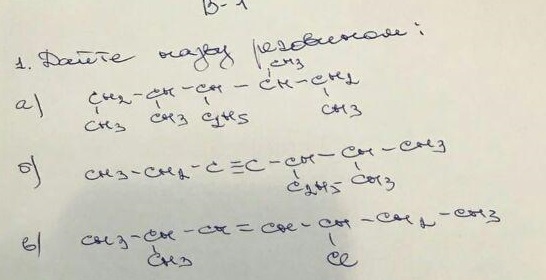 В-1
1. Дайте назву речовинам:
CH3
а) CH2-CH-CH-CH-CH2
CH3 CH3 C2H5 CH3
б) CH3-CH2-C≡C-CH-CH-CH3
C2H5 CH3
в) CH3-CH-CH=CH-CH-CH2-CH3
CH3 Cl